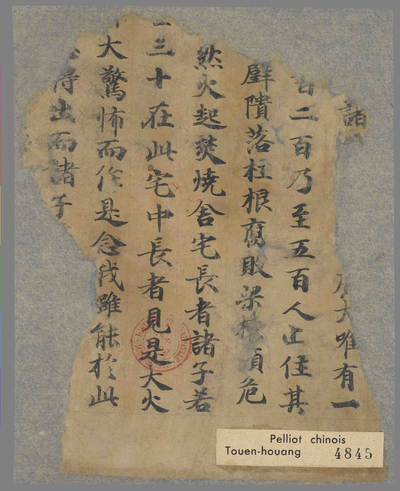 諸
廣大唯有一
百二百乃至五百人止住其
壁隤落柱根腐敗梁棟傾危
然火起焚燒舍宅長者諸子若
三十在此宅中長者見是大火
大驚怖而作是念我雖能於此
得出而諸子
Pelliot chinois
Touen-houang 4845